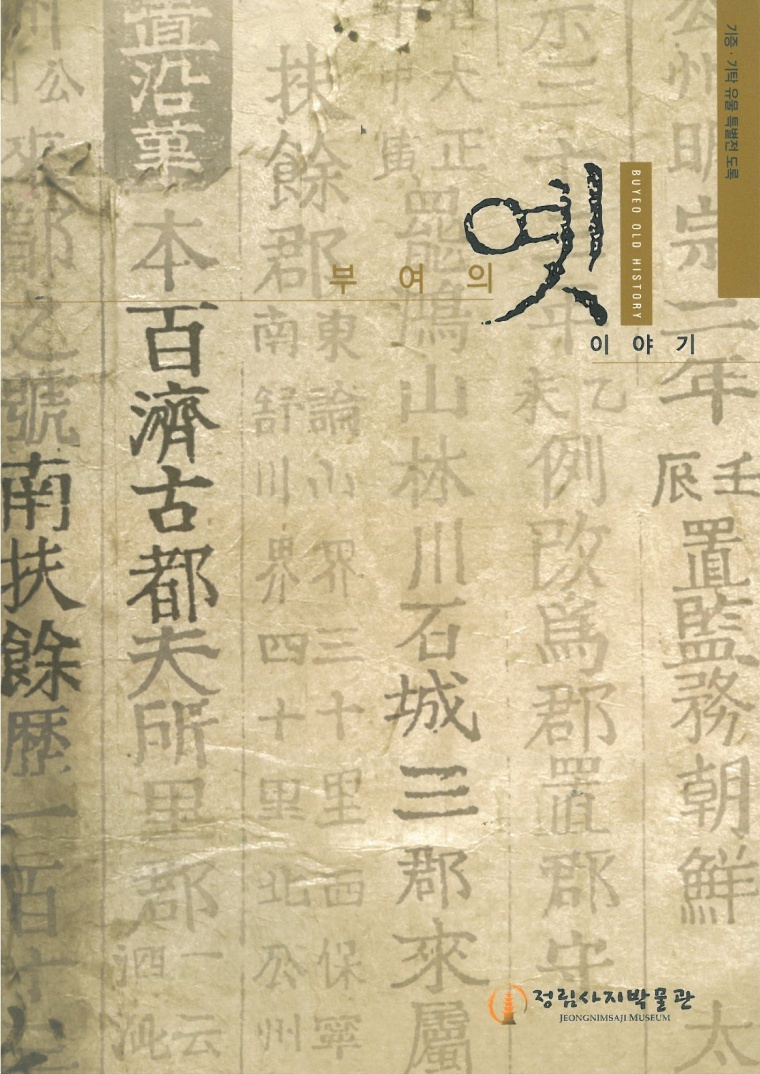 기증 · 기탁 유물 특별전 도록
BUYEO OLD HISTORY
부여의
옛
이야기
公州明宗二年
壬辰
置監務朝鮮太
乙未
例改爲郡置郡守
大正
寅
罷鴻山林川石城三郡來屬
扶餘郡
東論山界三十里西保寧
南舒川界四十里北於州
置沿革
本百濟古都夫所里郡
一云
泗沘
郡之號南扶餘歷一百
정림사지박물관
JEONGNIMSAJI MUSEUM